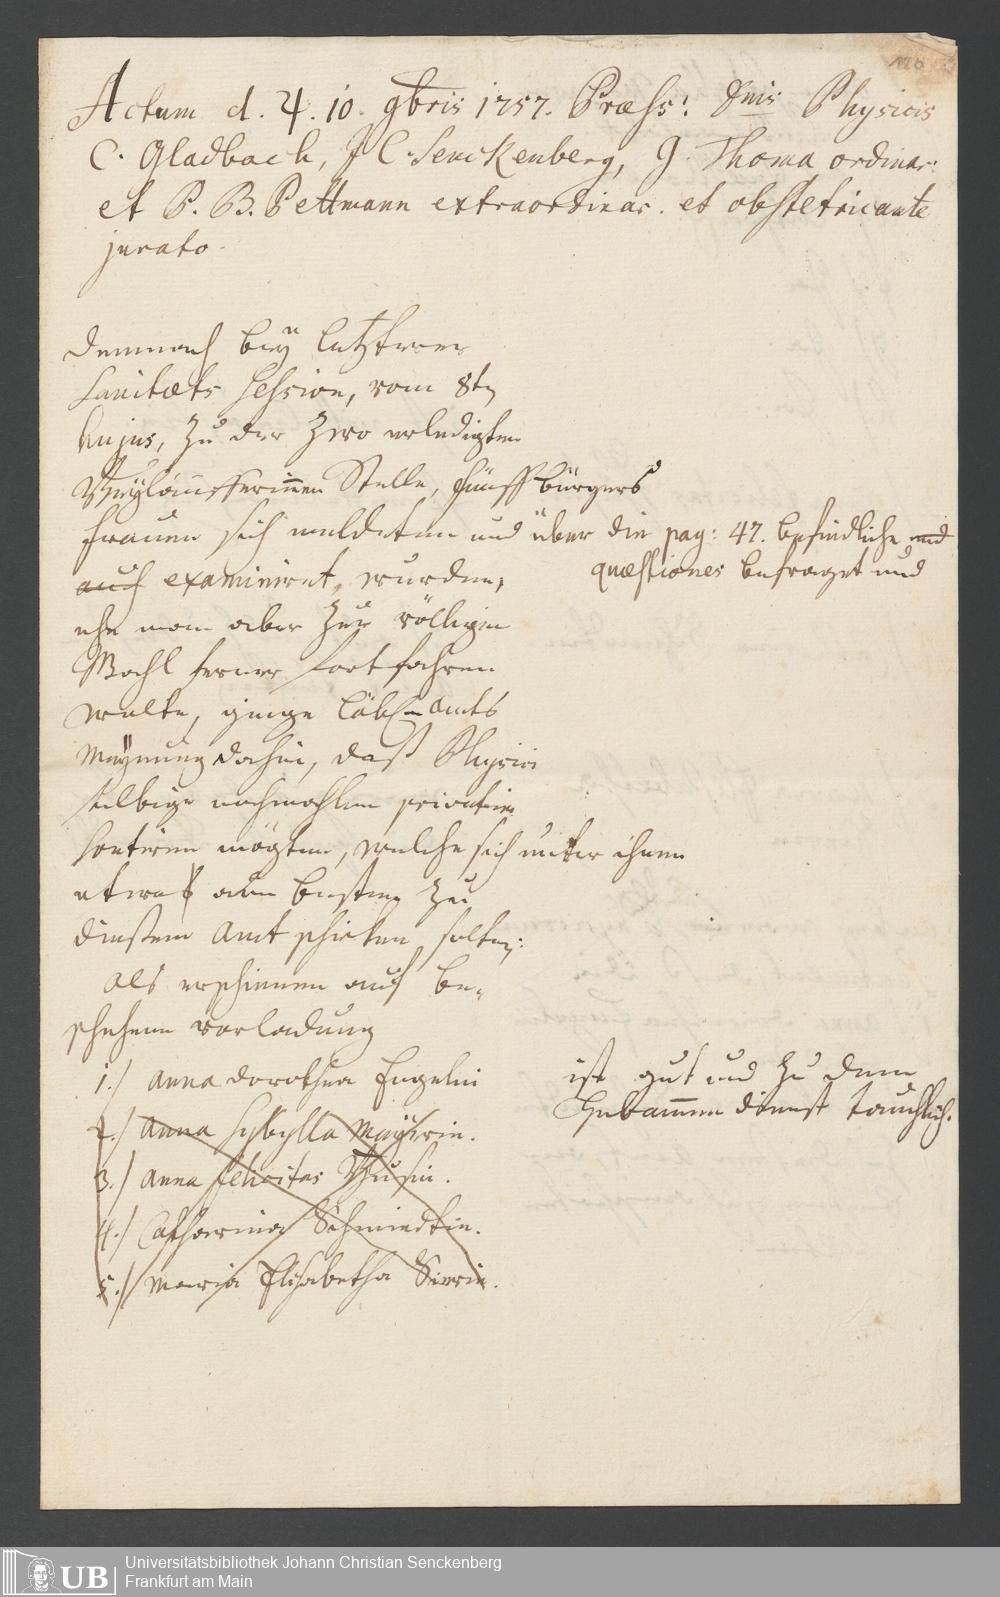 120
Actum d. ♃. 10. 9bris 1757. Præss: Dnis Physicis
C. Gladbach, J C. Senckenberg, J. Thoma ordinar:
et P. B. Pettmann extraordinar. et obstetricante
jurato.
Demnach bey letzterer
Sanitæts Session, vom 8ten
hujus, zu der zwo erledigten
Beyläufferinnen Stelle, fünff bürgers
frauen sich meldeten und über die pag: 47. befindliche und
quæstiones befraget und
auch examiniret wurden,
ehe man aber zur völligen
Wahl ferner fortfahren
wolte, ginge Löbl. amts
Meynung dahin, daß Physici
selbige nochmahlen privatim
sortiren mögten, welche sich unter ihnen
etwa am besten zu
dießem Amt schicken solten:
als erschienen auf be-
schehene vorladung
1./ Anna Dorothea Engelin
ist gut und zu dem
Hebammen dienst tauchlich.
2./ Anna Sybylla Mayerin.
3./ Anna Felicitas
4./ Catharina Schmiedtin.
5./ Maria Elisabetha
UB
Universitätsbibliothek Johann Christian Senckenberg
Frankfurt am Main